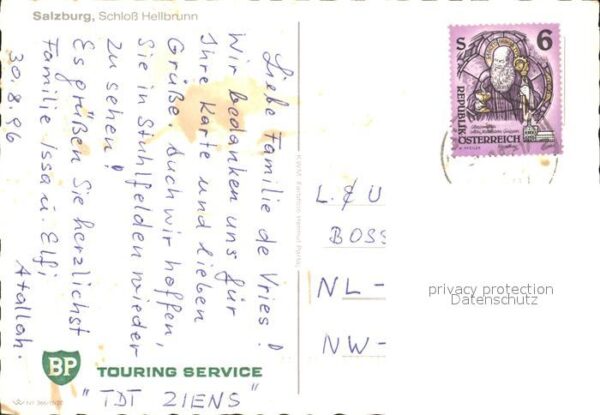 Salzburg, Schloß Hellbrunn
Liebe Familie de Vries!
Wir bedanken uns für
Ihre Karte und lieben
Grüße. Auch wir hoffen,
Sie in Stuhlfelden wieder
zu sehen!
Es grüßen Sie herzlichst
Familie Issa u. Elfi
Atallah.
30.8.96
BP
TOURING SERVICE
"TOT ZIENS"
S 6
REPUBLIK
ÖSTERREICH
L. & U
BOSS
NL-
NW-
privacy protection
Datenschutz